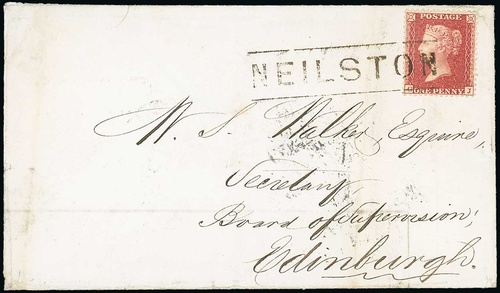 POSTAGE
NEILSTON
ONE PENNY
J
W. S. Walker, Esquire,
Secretary,
Board of Supervision,
Edinburgh.